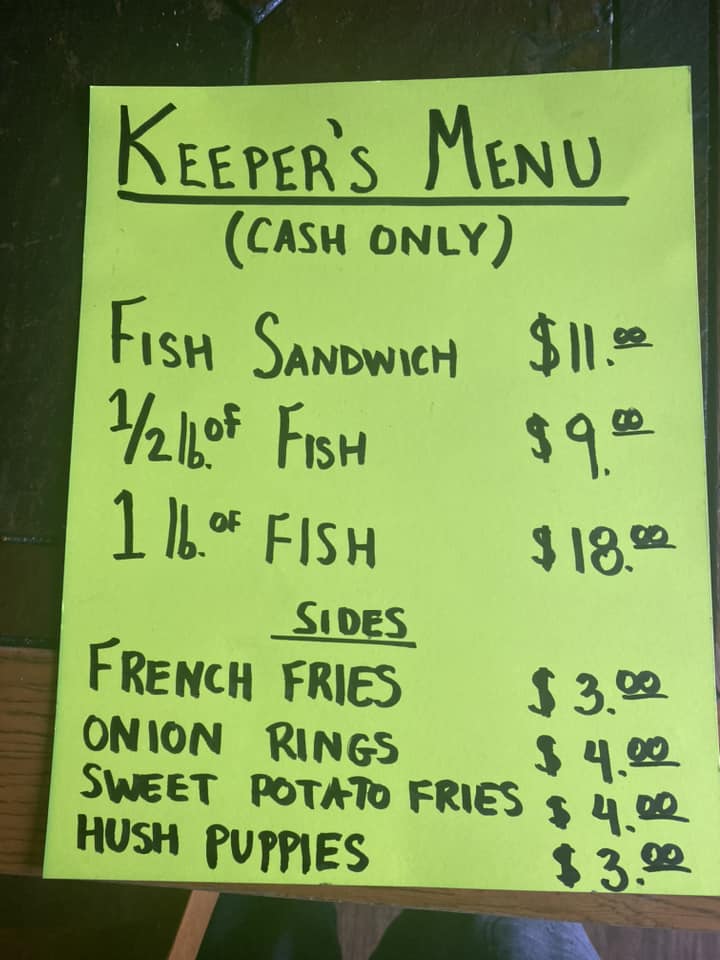 KEEPER'S MENU
(CASH ONLY)
FISH SANDWICH $11.00
1/2 lb. of FISH $9.00
1 lb. OF FISH $18.00
SIDES
FRENCH FRIES $3.00
ONION RINGS $4.00
SWEET POTATO FRIES $4.00
HUSH PUPPIES $3.00